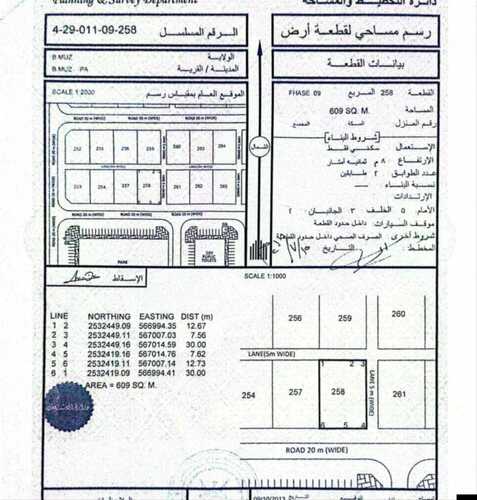 Planning & Survey Department
دائرة التخطيط والمساحة
4-29-011-09-258 الرقم المسلسل
رسم مساحي لقطعة أرض
B.MUZ الولاية
B.MUZ /PA المدينة / القرية
بيانات القطعة
SCALE 1:2500 الموقع العام بمقياس رسم
القطعة 258 المربع PHASE 09
المساحة 609 SQ. M.
رقم المنزل السكة المجمع
شروط البناء
الإستعمال سكني فقط
الارتفاع ٨ م ثمانية أمتار
عدد الطوابق ٢ طابقين
نسبة البناء
الارتدادات
الأمام ٥ الخلف ٣ الجانبان ٢
موقف السيارات داخل حدود القطعة
شروط أخرى الصرف الصحي داخل حدود القطعة
المخطط التاريخ
الشمال
ROAD 20 m (WIDE)
252 231 229 260 263 264
253 254 257 258 261 262
ROAD 20 m (WIDE)
الإسقاط
SCALE 1:1000
LINE NORTHING EASTING DIST (m)
1 2 2532449.09 566994.35 12.67
2 3 2532449.11 567007.03 7.56
3 4 2532449.16 567014.59 30.00
4 5 2532419.16 567014.76 7.62
5 6 2532419.11 567007.14 12.73
6 1 2532419.09 566994.41 30.00
AREA = 609 SQ. M.
256 259 260
LANE(5m WIDE)
1 2 3
254 257 258 261
LANE 5 m (WIDE)
6 5 4
ROAD 20 m (WIDE)
09/10/2013